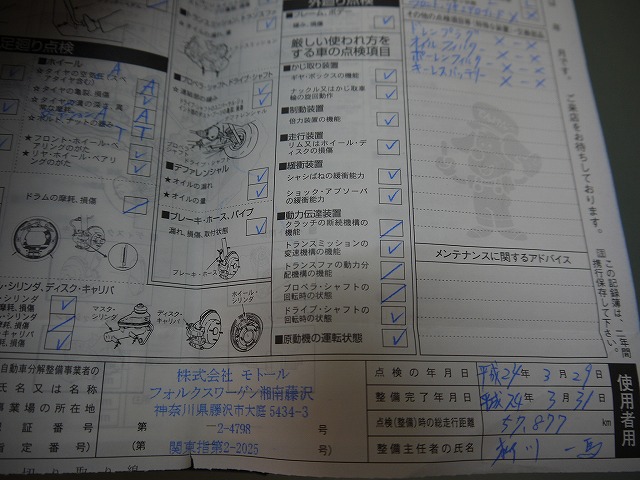 外廻り点検
足廻り点検
■ホイール
☆タイヤの亀裂、損傷
★フロント・ホイール・ベアリングのがた
☆リヤ・ホイール・ベアリングのがた
ドラムの摩耗、損傷
■プロペラ・シャフト、ドライブ・シャフト
連結部の緩み
■デファレンシャル
★オイルの漏れ
★オイルの量
■ブレーキ・ホース、パイプ
漏れ、損傷、取付状態
ブレーキ・ホース
マスタ・シリンダ
ディスク・キャリパ
ホイール・シリンダ
厳しい使われ方を
する車の点検項目
■かじ取り装置
ギヤ・ボックスの機能
ナックル又はかじ取車輪の旋回動作
■制動装置
倍力装置の機能
■走行装置
リム又はホイール・ディスクの損傷
■緩衝装置
シャシばねの緩衝能力
ショック・アブソーバの緩衝能力
■動力伝達装置
クラッチの断続機構の機能
トランスミッションの変速機構の機能
トランスファの動力分配機構の機能
プロペラ・シャフトの回転時の状態
ドライブ・シャフトの回転時の状態
■原動機の運転状態
ドレンプラグ ×－×
オイルフィルタ ×－×
ポーレンフィルタ ×－×
キーレスバッテリー ×－×
メンテナンスに関するアドバイス
年 月です。ご来店をお待ちしております。
この記録簿は、二年間携行保存して下さい。
自動車分解整備事業者の
氏名又は名称
事業場の所在地
認証番号 第 号
指定番号) (第 号)
株式会社 モトール
フォルクスワーゲン湘南藤沢
神奈川県藤沢市大庭5434-3
―2-4798
関東指第2-2025
点検の年月日 平成24年 3月29日
整備完了年月日 平成24年 3月31日
点検(整備)時の総走行距離 57,877 km
整備主任者の氏名
使用者用